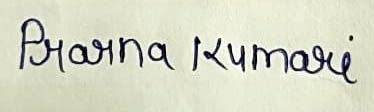 Prarna Kumari